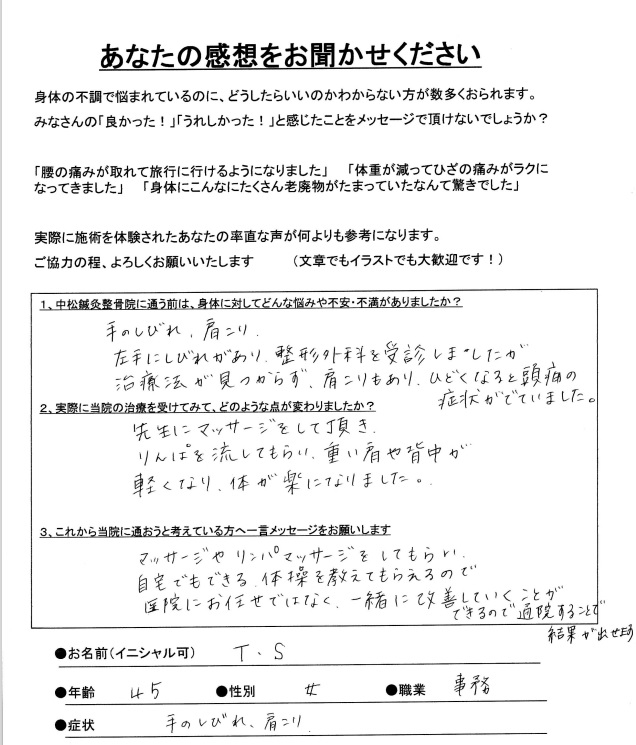 あなたの感想をお聞かせください
身体の不調で悩まれているのに、どうしたらいいのかわからない方が数多くおられます。
みなさんの「良かった！」「うれしかった！」と感じたことをメッセージで頂けないでしょうか？
「腰の痛みが取れて旅行に行けるようになりました」　「体重が減ってひざの痛みがラクに
なってきました」　「身体にこんなにたくさん老廃物がたまっていたなんて驚きでした」
実際に施術を体験されたあなたの率直な声が何よりも参考になります。
ご協力の程、よろしくお願いいたします　　（文章でもイラストでも大歓迎です！）
1、中松鍼灸整骨院に通う前は、身体に対してどんな悩みや不安・不満がありましたか？
手のしびれ、肩こり.
左手にしびれがあり、整形外科を受診しましたが
治療法が見つからず、肩こりもあり、ひどくなると頭痛の
症状がでていました。
2、実際に当院の治療を受けてみて、どのような点が変わりましたか？
先生にマッサージをして頂き、
りんぱを流してもらい、重い肩や背中が
軽くなり、体が楽になりました。
3、これから当院に通おうと考えている方へ一言メッセージをお願いします
マッサージやリンパマッサージをしてもらい、
自宅でもできる、体操を教えてもらえるので
医院にお任せではなく、一緒に改善していくことが
できるので通院することで
結果が出せます
●お名前（イニシャル可）　T・S
●年齢　45　●性別　女　●職業　事務
●症状　手のしびれ、肩こり